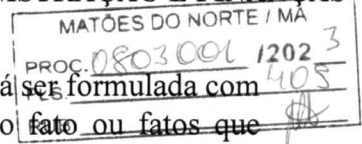 MATÕES DO NORTE / MA
PROC. 0803001 /2023
FLS. 405
á ser formulada com
o fato ou fatos que